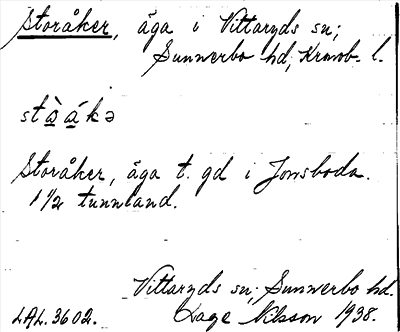 Storåker, äga i Vittaryds sn;
Sunnerbo hd, Kronob. l.
stà̱á̱kə
Storåker, äga t. gd i Jonsboda.
1 1/2 tunnland.
Vittaryds sn; Sunnerbo hd.
LAL.3602. Lage Nilsson 1938.